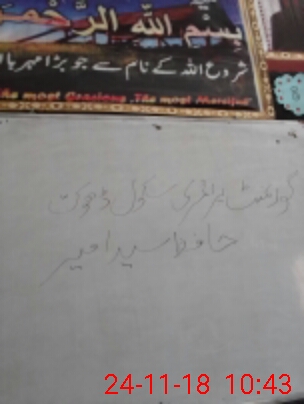 بِسْمِ اللهِ الرَّحْمٰنِ
شروع اللہ کے نام سے جو بڑا مہربان
The most Gracious, The most Merciful
گورنمنٹ پرائمری سکول ڈھوک
حافظ سید امیر
24-11-18 10:43